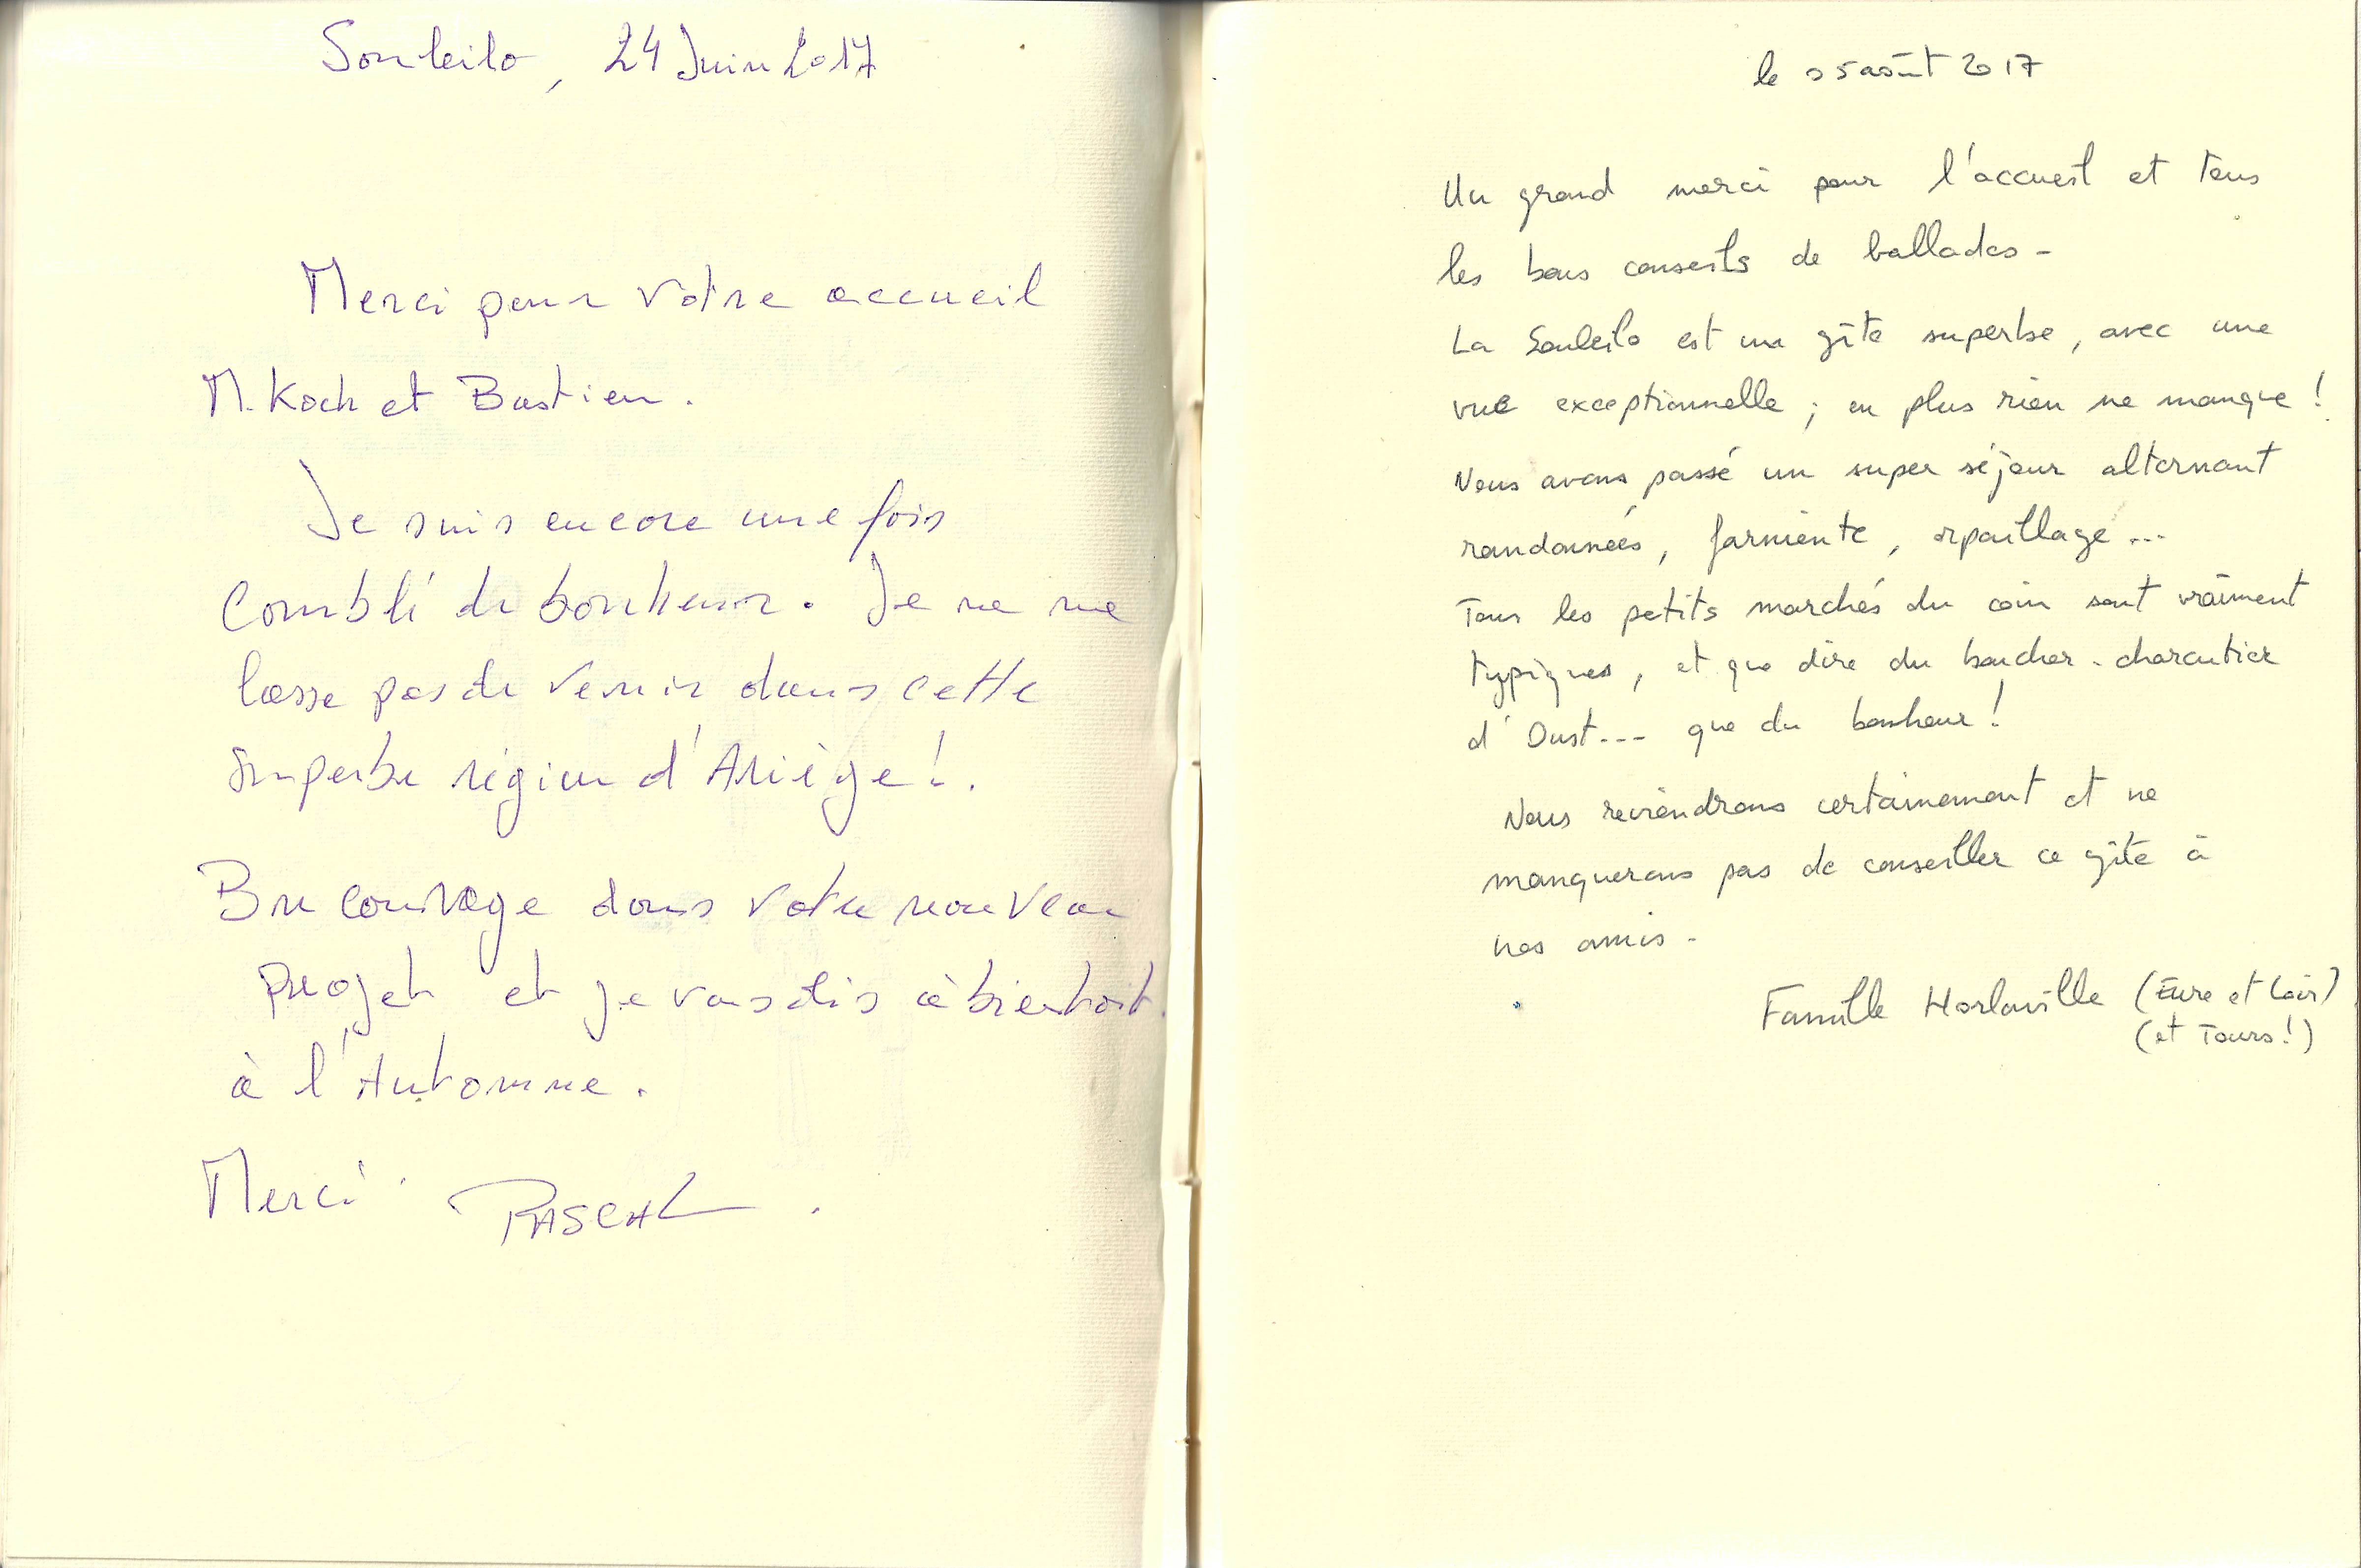 Souleilo, 24 Juin 2017
Merci pour votre accueil
M. Koch et Bastien.
Je suis encore une fois
Comblé de bonheur. Je ne me
lasse pas de venir dans cette
superbe région d'Ariège !.
Bon courage dans votre nouveau
projet et je vous dis à bientoit.
à l'Automne.
Merci. PASCAL.
le 05 août 2017
Un grand merci pour l'accueil et tous
les bons conseils de ballades -
La Souleilo est un gîte superbe, avec une
vue exceptionnelle ; en plus rien ne manque !
Nous avons passé un super séjour alternant
randonnées, farniente, orpaillage ...
Tous les petits marchés du coin sont vraiment
typiques, et que dire du boucher-charcutier
d'Oust --- que du bonheur !
Nous reviendrons certainement et ne
manquerons pas de conseiller ce gîte à
nos amis -
Famille Horlaville (Eure et Loir)
(et Tours !)